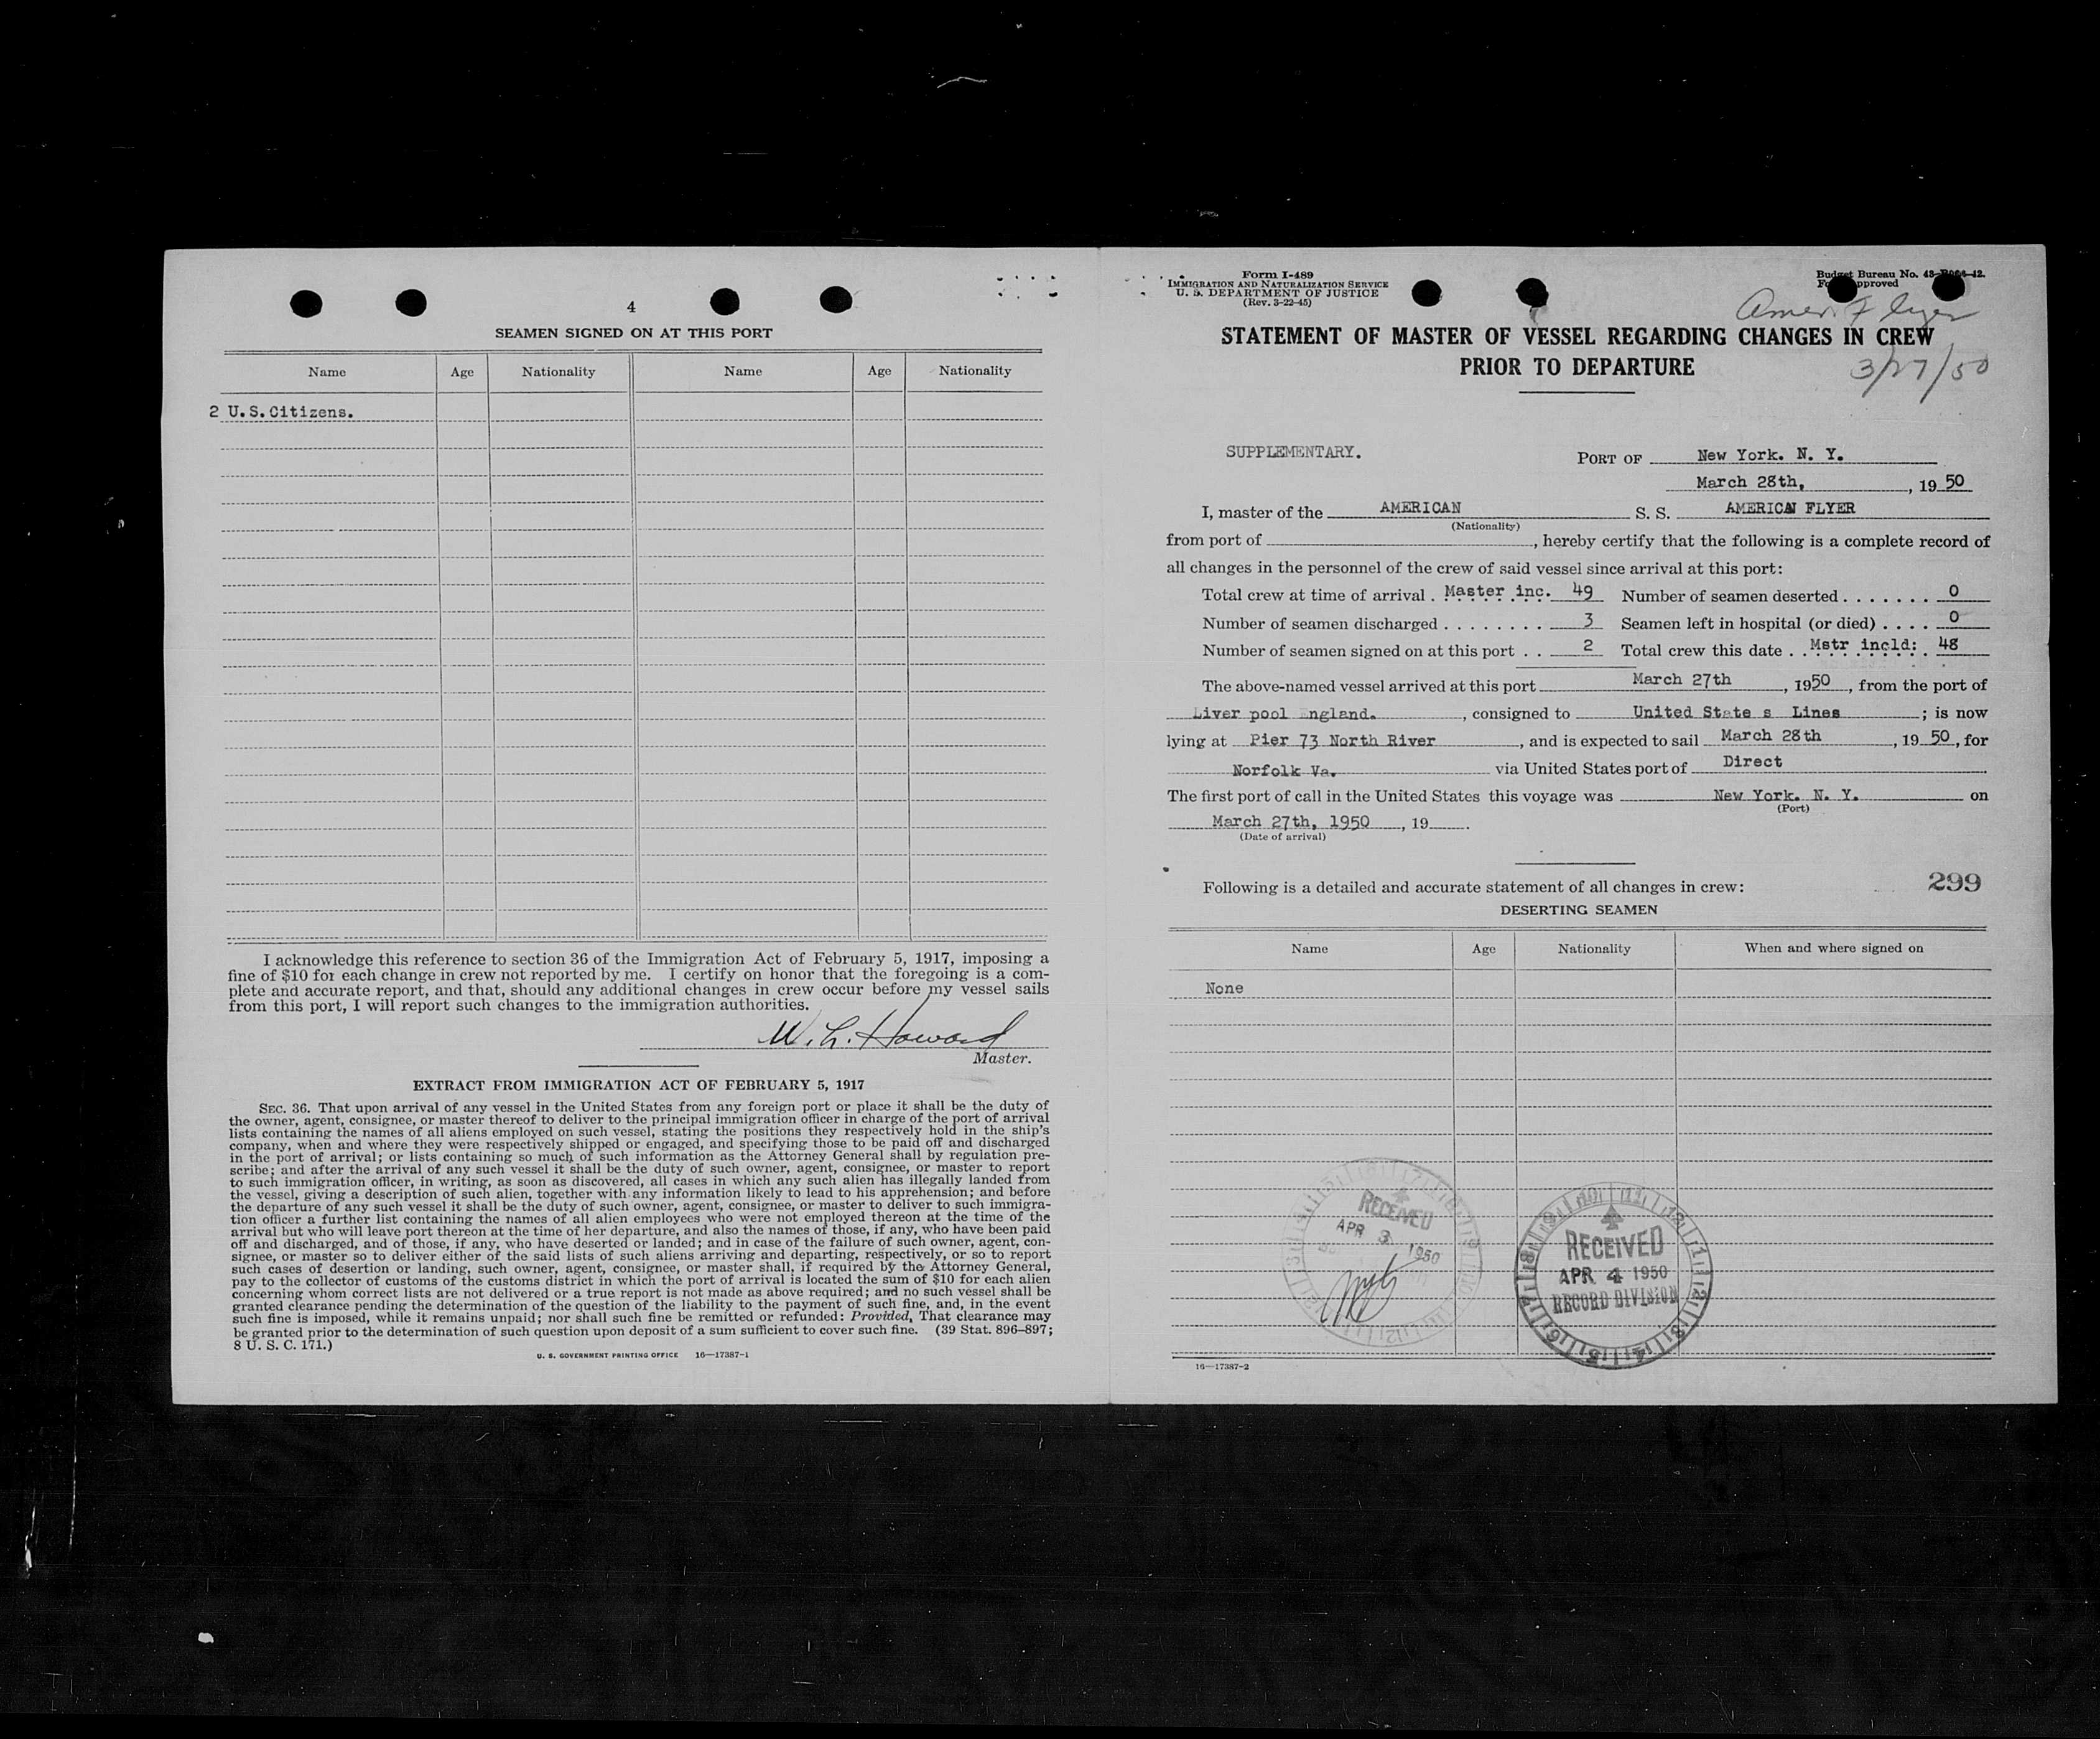 4
SEAMEN SIGNED ON AT THIS PORT
Name Age Nationality Name Age Nationality
2 U.S.Citizens.
I acknowledge this reference to section 36 of the Immigration Act of February 5, 1917, imposing a
fine of $10 for each change in crew not reported by me. I certify on honor that the foregoing is a com-
plete and accurate report, and that, should any additional changes in crew occur before my vessel sails
from this port, I will report such changes to the immigration authorities.
W. L. Howard
Master.
EXTRACT FROM IMMIGRATION ACT OF FEBRUARY 5, 1917
SEC. 36. That upon arrival of any vessel in the United States from any foreign port or place it shall be the duty of
the owner, agent, consignee, or master thereof to deliver to the principal immigration officer in charge of the port of arrival
lists containing the names of all aliens employed on such vessel, stating the positions they respectively hold in the ship's
company, when and where they were respectively shipped or engaged, and specifying those to be paid off and discharged
in the port of arrival; or lists containing so much of such information as the Attorney General shall by regulation pre-
scribe; and after the arrival of any such vessel it shall be the duty of such owner, agent, consignee, or master to report
to such immigration officer, in writing, as soon as discovered, all cases in which any such alien has illegally landed from
the vessel, giving a description of such alien, together with any information likely to lead to his apprehension; and before
the departure of any such vessel it shall be the duty of such owner, agent, consignee, or master to deliver to such immigra-
tion officer a further list containing the names of all alien employees who were not employed thereon at the time of the
arrival but who will leave port thereon at the time of her departure, and also the names of those, if any, who have been paid
off and discharged, and of those, if any, who have deserted or landed; and in case of the failure of such owner, agent, con-
signee, or master so to deliver either of the said lists of such aliens arriving and departing, respectively, or so to report
such cases of desertion or landing, such owner, agent, consignee, or master shall, if required by the Attorney General,
pay to the collector of customs of the customs district in which the port of arrival is located the sum of $10 for each alien
concerning whom correct lists are not delivered or a true report is not made as above required; and no such vessel shall be
granted clearance pending the determination of the question of the liability to the payment of such fine, and, in the event
such fine is imposed, while it remains unpaid; nor shall such fine be remitted or refunded: Provided, That clearance may
be granted prior to the determination of such question upon deposit of a sum sufficient to cover such fine. (39 Stat. 896-897;
8 U. S. C. 171.)
U. S. GOVERNMENT PRINTING OFFICE 16—17387-1
Form I-489
IMMIGRATION AND NATURALIZATION SERVICE
U. S. DEPARTMENT OF JUSTICE
(Rev. 3-22-45)
Budget Bureau No.
Amer. Flyer
STATEMENT OF MASTER OF VESSEL REGARDING CHANGES IN CREW
PRIOR TO DEPARTURE
3/27/50
SUPPLEMENTARY.
PORT OF New York. N. Y.
March 28th, , 19 50
I, master of the AMERICAN S. S. AMERICAN FLYER
(Nationality)
from port of , hereby certify that the following is a complete record of
all changes in the personnel of the crew of said vessel since arrival at this port:
Total crew at time of arrival . Master inc. 49 Number of seamen deserted . . . . . . . 0
Number of seamen discharged . . . . . . . . 3 Seamen left in hospital (or died) . . . . 0
Number of seamen signed on at this port . . 2 Total crew this date . . Mstr incld: 48
The above-named vessel arrived at this port March 27th , 1950 , from the port of
Liver pool ngland. , consigned to United State s Lines ; is now
lying at Pier 73 North River , and is expected to sail March 28th , 19 50 , for
Norfolk Va. via United States port of Direct
The first port of call in the United States this voyage was New York. N. Y. on
(Port)
March 27th, 1950 , 19 .
(Date of arrival)
Following is a detailed and accurate statement of all changes in crew:
299
DESERTING SEAMEN
Name Age Nationality When and where signed on
None
RECEIVED
APR 3 1950
RECEIVED
APR 4 1950
RECORD DIVISION
16—17387-2